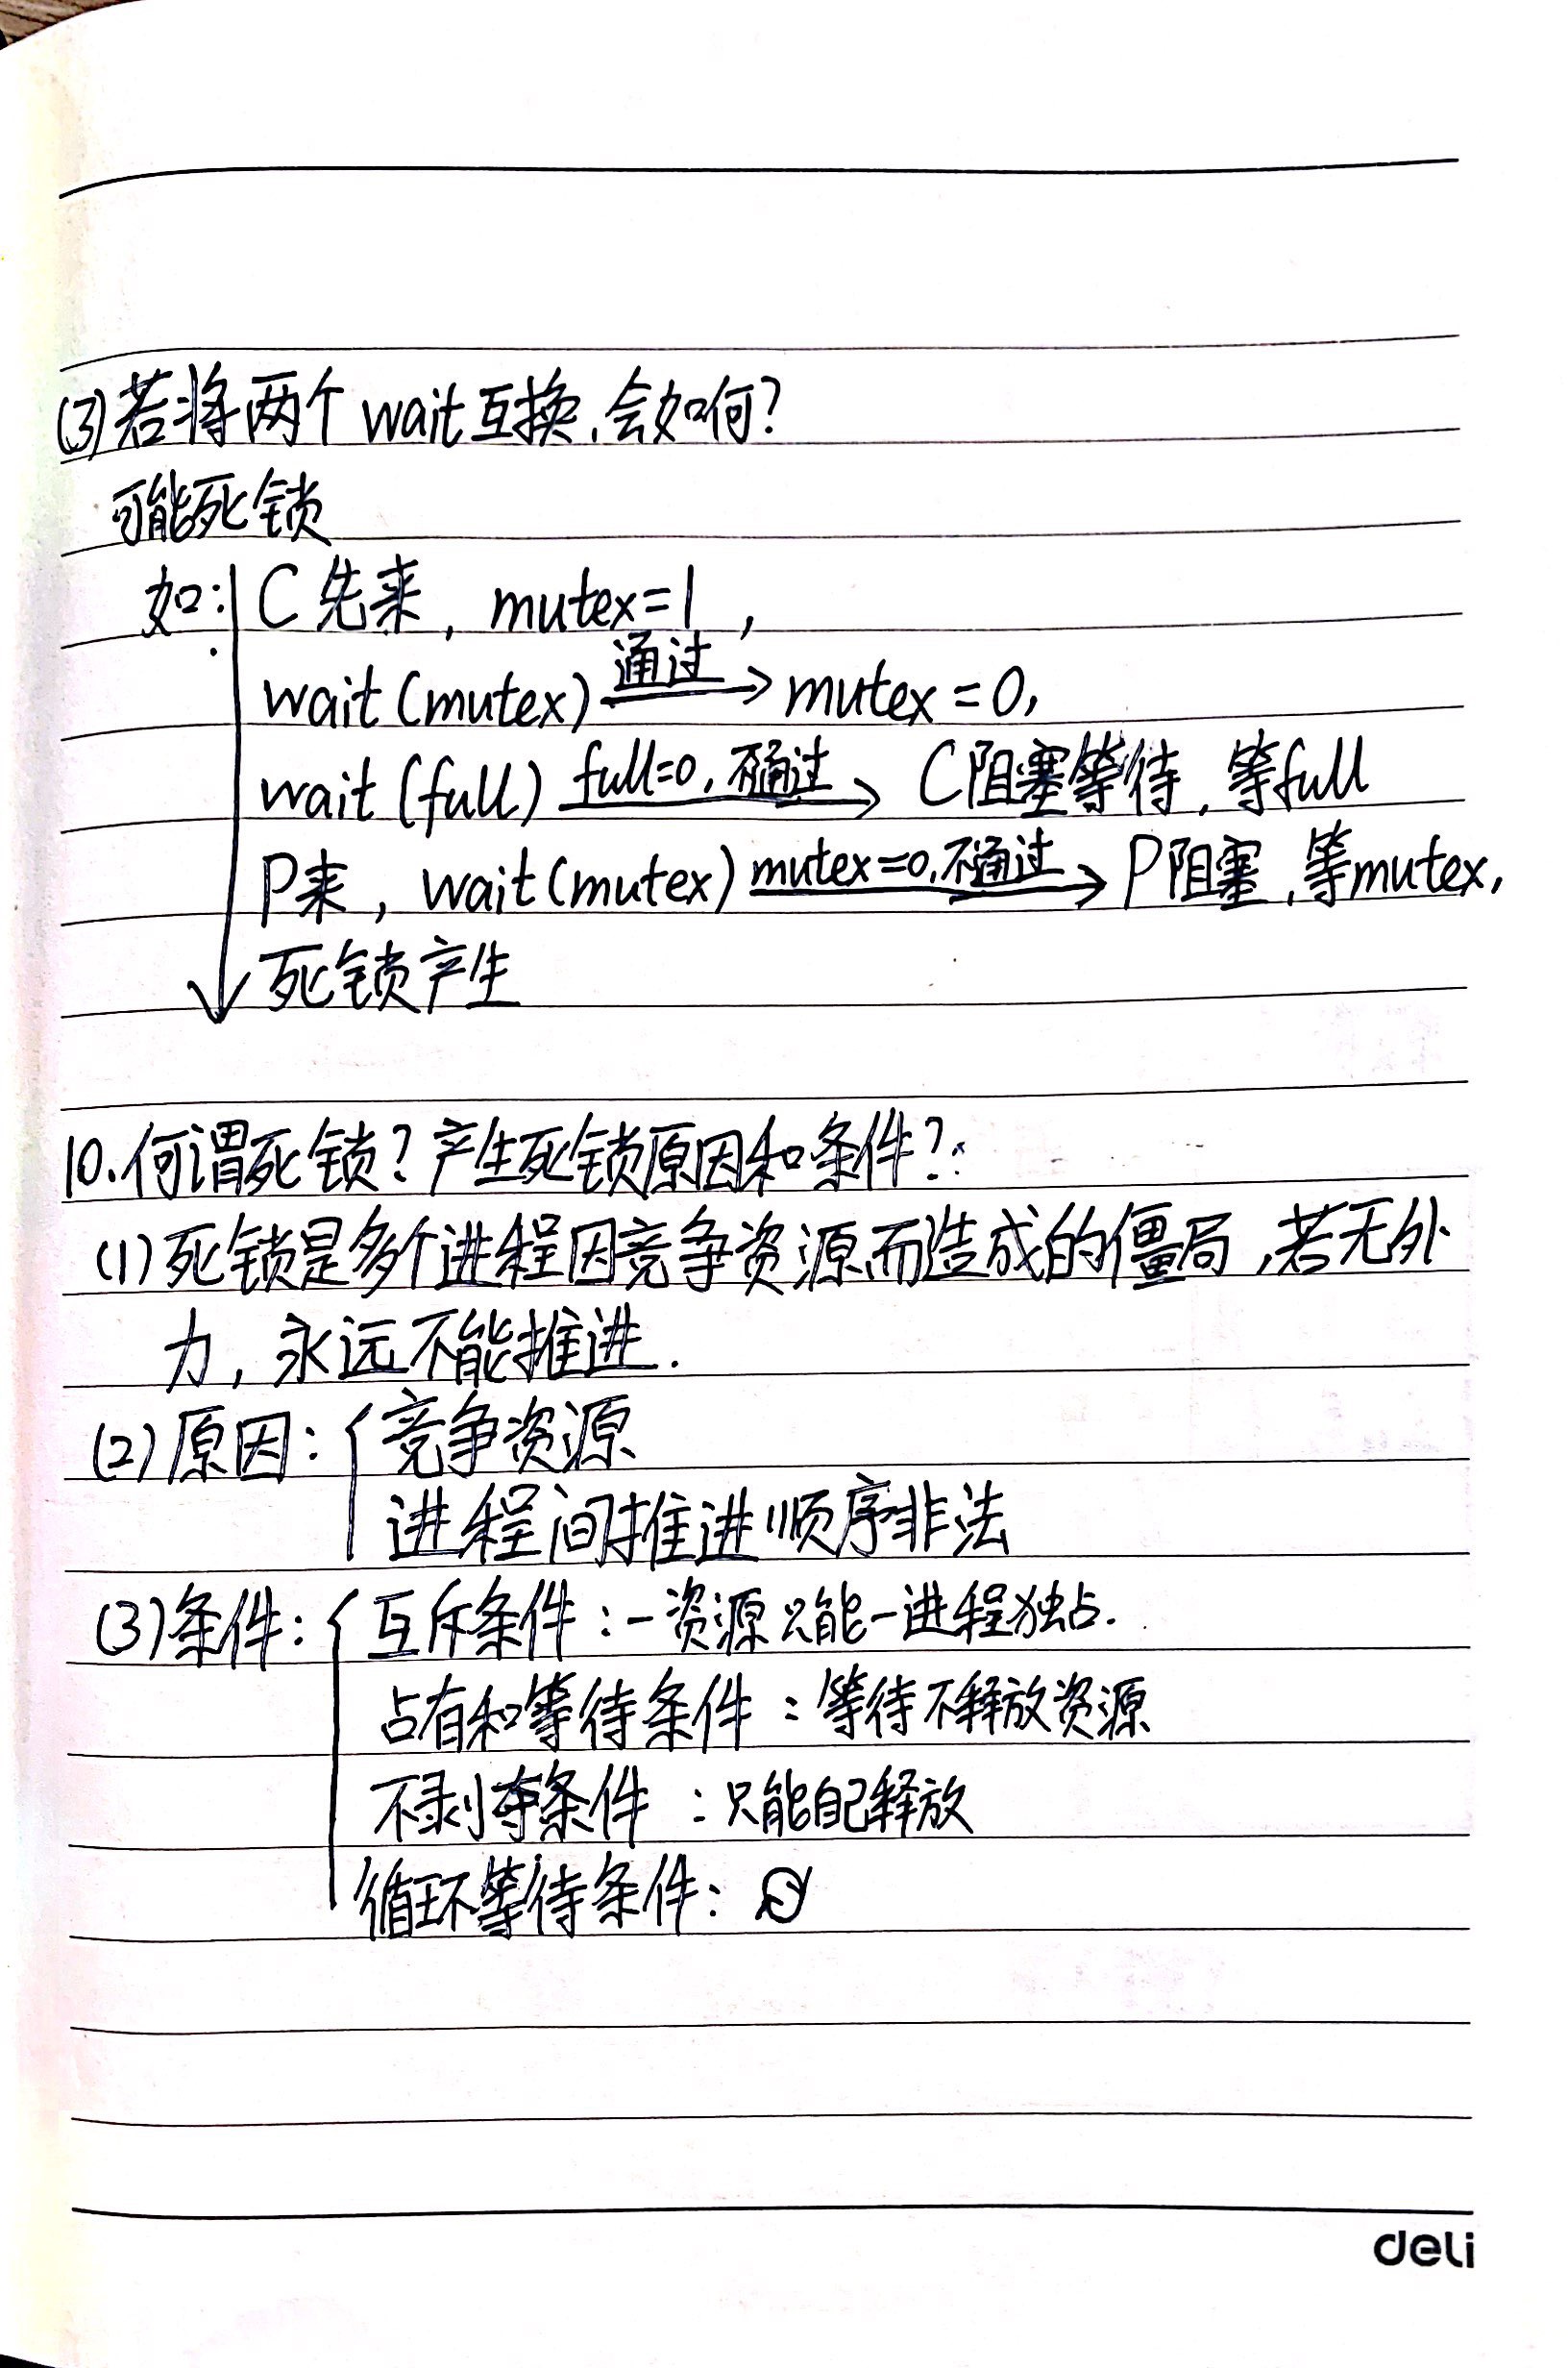 (3)若将两个wait互换,会如何?
可能死锁
如: C先来, mutex=1,
wait(mutex) 通过→ mutex=0,
wait(full) full=0,不通过→ C阻塞等待,等full
P来, wait(mutex) mutex=0,不通过→ P阻塞,等mutex,
死锁产生
10.何谓死锁?产生死锁原因和条件?:
(1)死锁是多个进程因竞争资源而造成的僵局,若无外
力,永远不能推进.
(2)原因: {竞争资源
进程间推进顺序非法
(3)条件: {互斥条件:一资源只能一进程独占.
占有和等待条件:等待不释放资源
不剥夺条件:只能自己释放
循环等待条件:
deli